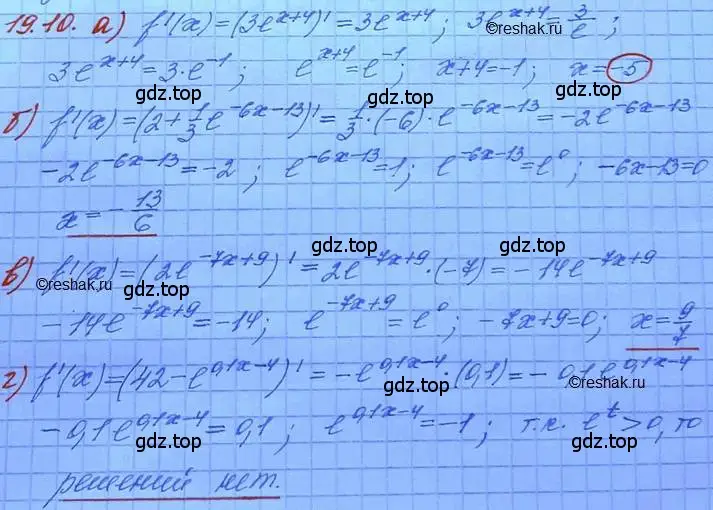 19.10. а) f'(x)=(3e^{x+4})'=3e^{x+4}; 3e^{x+4}=\frac{3}{e};
©reshak.ru
3e^{x+4}=3·e^{-1}; e^{x+4}=e^{-1}; x+4=-1; x=-5
gdz.top gdz.top
б) f'(x)=(2+\frac{1}{3}e^{-6x-13})'=\frac{1}{3}·(-6)·e^{-6x-13}=-2e^{-6x-13}
-2e^{-6x-13}=-2; e^{-6x-13}=1; e^{-6x-13}=e^{0}; -6x-13=0
gdz.top gdz.top
x=-\frac{13}{6}
gdz.top
в) f'(x)=(2e^{-7x+9})'=2e^{-7x+9}·(-7)=-14e^{-7x+9}
©reshak.ru gdz.top gdz.top
-14e^{-7x+9}=-14; e^{-7x+9}=e^{0}; -7x+9=0; x=\frac{9}{7}
gdz.top
г) f'(x)=(42-e^{0,1x-4})'=-e^{0,1x-4}·(0,1)=-0,1e^{0,1x-4}
gdz.top gdz.top ©reshak.ru
-0,1e^{0,1x-4}=0,1; e^{0,1x-4}=-1; т.к. e^{t}>0, то
gdz.top gdz.top
решений нет.